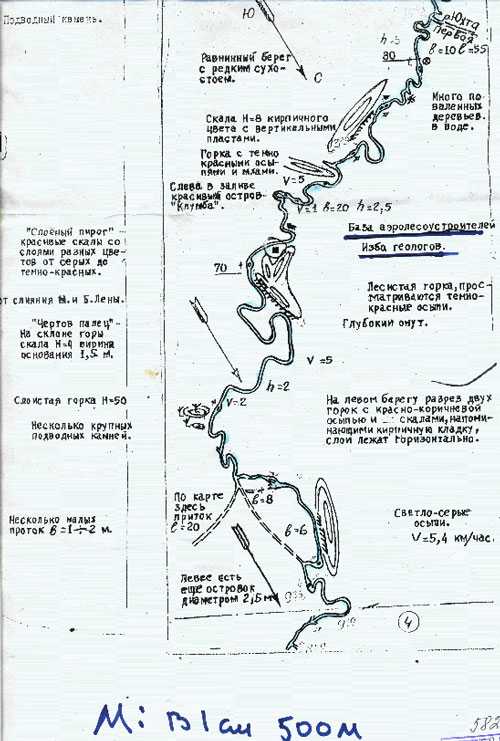 Подводный камень.
Ю
С
р. Юхта
Первая
в=10 l=55
h=3
80
Равнинный берег
с редким сухо-
стоем.
Много по-
валенных
деревьев
в воде.
Скала H=8 кирпичного
цвета с вертикальными
пластами.
Горка с темно
красными осы-
пями и мхами.
V=5
Слева в заливе
красивый остров-
"Клумба".
V=1 в=20 h=2,5
База аэролесоустроителей
Изба геологов.
"Слоёный пирог"-
красивые скалы со
слоями разных цве-
тов от серых до
темно-красных.
70
от слияния М. и Б.Лены.
Лесистая горка, прос-
матриваются темно-
красные осыпи.
Глубокий омут.
"Чертов палец"-
На склоне горы
скала H=4 ширина
основания 1,5 м.
V=5
h=2
V=2
Слоистая горка H=50
Несколько крупных
подводных камней.
На левом берегу разрез двух
горок с красно-коричневой
осыпью и скалами, напоми-
нающими кирпичную кладку,
слои лежат горизонтально.
По карте
здесь
приток
l=20
в=8
в=6
Несколько малых
проток в=1÷2 м.
Светло-серые
осыпи.
V=5,4 км/час.
Левее есть
еще островок
диаметром 2,5 м
4
М: в 1см 500м
582